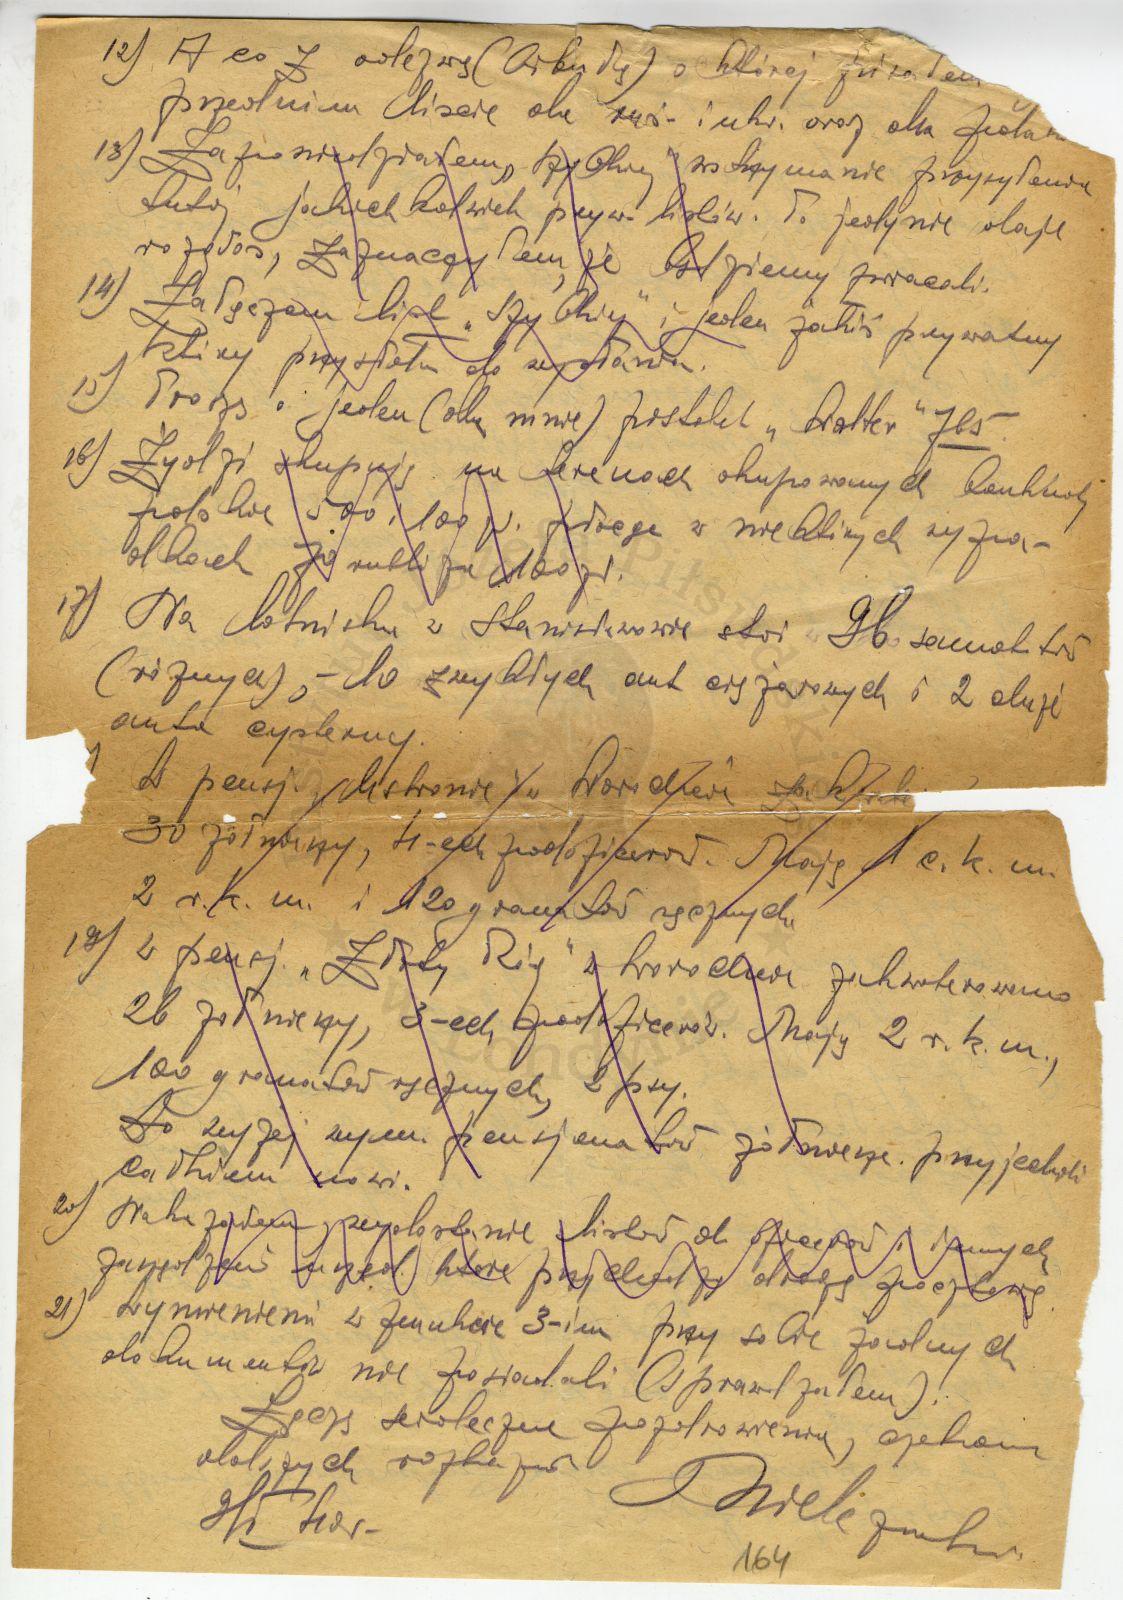 12) A co z odezwą (Arkudą) o której pisałem
przednim liście dla ros- i ukr. oraz dla
13) Zapowiedziałem, szybkie wstrzymanie przysyłania
tutaj jakichkolwiek pryw. listów. To jedynie daje
rozgłos, zaznaczyłem, że będziemy zwracali.
14) Załączam list „Szybkiej" i jeden jakiś prywatny
który przysłała do wysłania.
15) Proszę o jeden (dla mnie) pistolet „Walter" 7.65.
16) Żydzi skupują na terenach okupowanych banknoty
polskie 500, i 100 zł. płacąc w niektórych wypa-
dkach rubli za 100 zł.
17) Na lotnisku w Stanisławowie stoi 96 samolotów
(różnych), – 40 zwykłych aut ciężarowych i 2 duże
auta cysterny.
) W pensj. w Worochcie
30 żołnierzy, 4-ech podoficerów. Mają 1 c.k.m.
2 r.k.m. i 120 granatów ręcznych.
19) w pensj. „Złoty Róg" w Worochcie zakwaterowano
26 żołnierzy, 3-ech podoficerów. Mają 2 r.k.m.,
100 granatów ręcznych, 2 psy.
Do wyżej wym. pensjonatów żołnierze przyjechali
całkiem nowi.
20) Nakazałem wydostanie listów od oficerów i innych
które przychodzą drogą pocztową.
21) Wymienieni w punkcie 3-im przy sobie żadnych
dokumentów nie posiadali (sprawdzałem).
Łączę serdeczne pozdrowienia, czekam
dalszych rozkazów
164